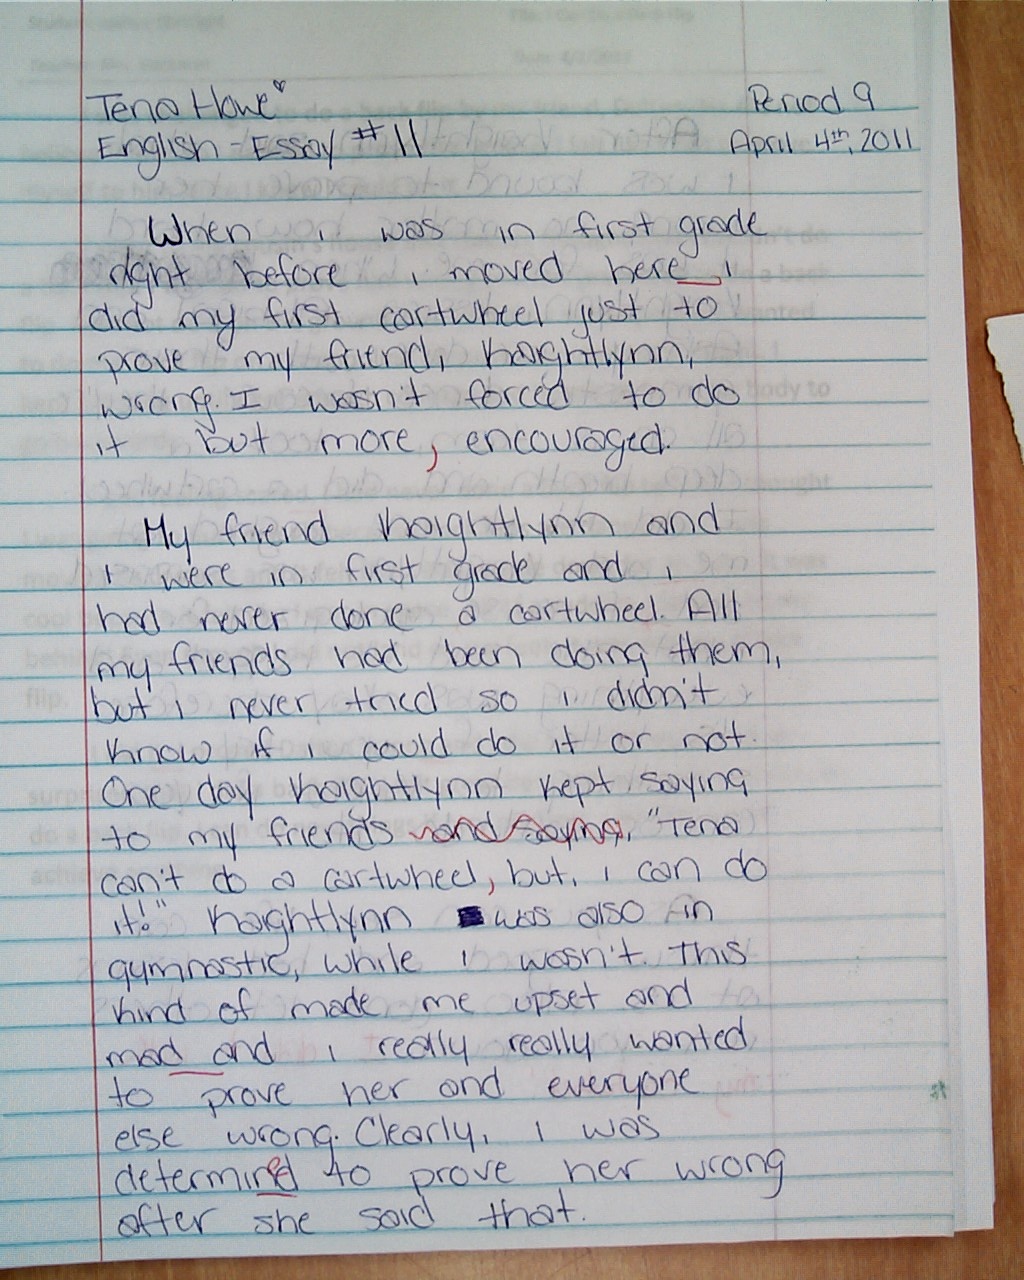 Tena Howe
Period 9
English - Essay #11
April 4th, 2011
When i was in first grade
right before i moved here, i
did my first cartwheel just to
prove my friend, Kaightlynn,
wrong. I wasn't forced to do
it but more, encouraged.
My friend Kaightlynn and
i were in first grade and i
had never done a cartwheel. All
my friends had been doing them,
but i never tried so i didn't
know if i could do it or not.
One day Kaightlynn kept saying
to my friends and saying, "Tena
can't do a cartwheel, but, i can do
it!" Kaightlynn was also in
gymnastic, while i wasn't. This
kind of made me upset and
mad and i really really wanted
to prove her and everyone
else wrong. Clearly, i was
determined to prove her wrong
after she said that.